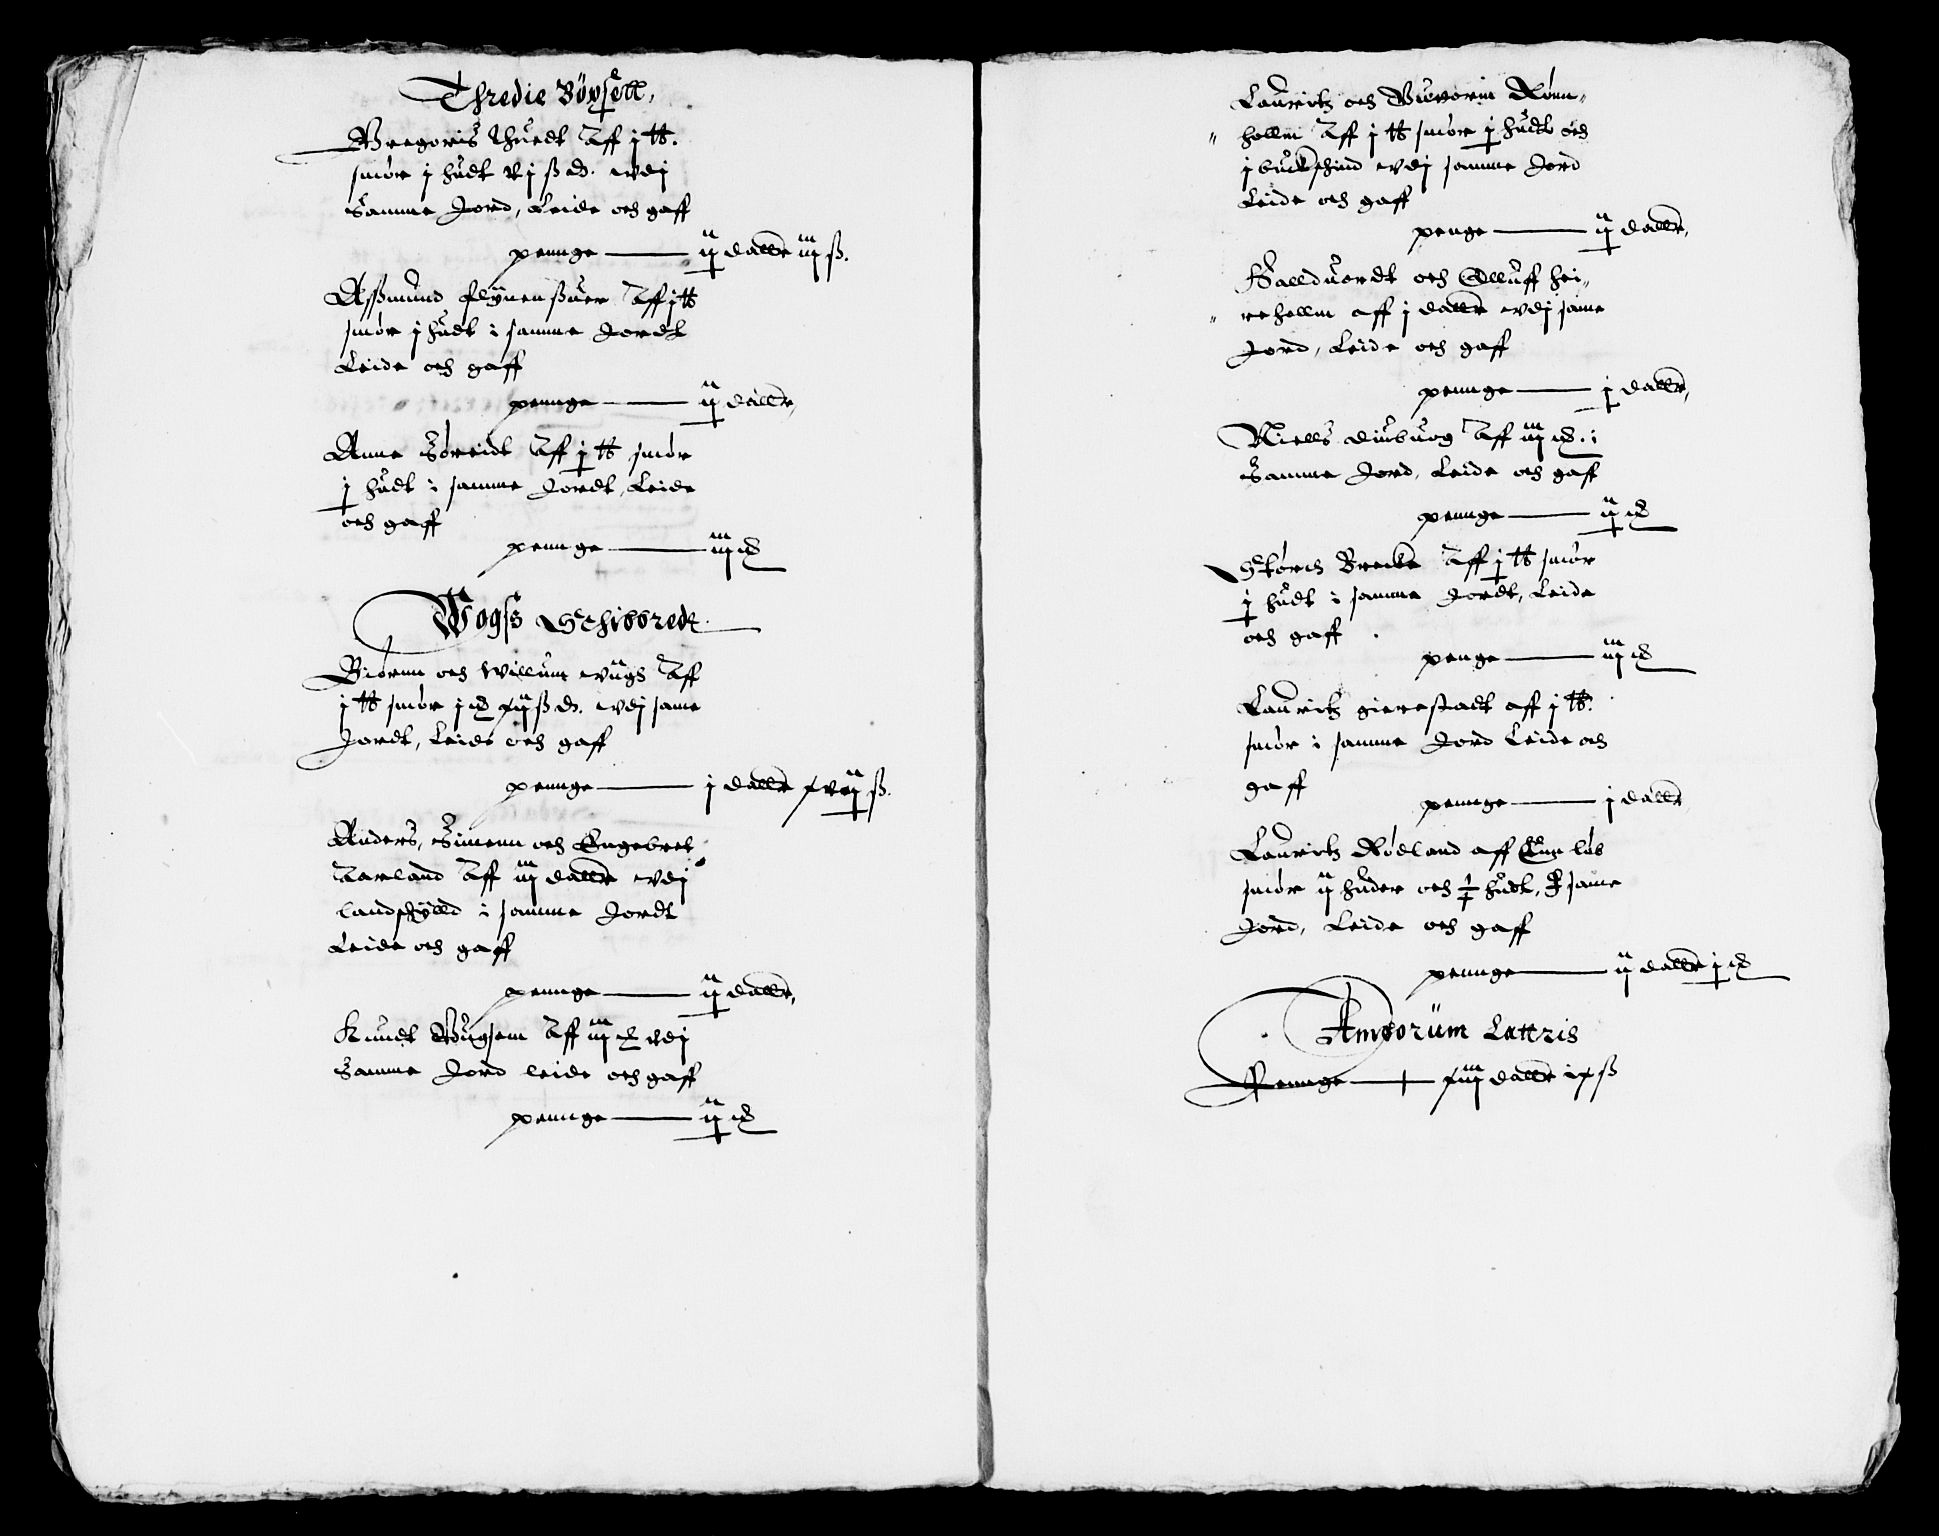 Thredie Böxsell,
Gregoris Thuedt Aff j ℔.
smør j hudt vj ß d. wdj
Samme Jord, Leide och gaff
pennge — ij daller iij ß.
Assmund Aff j ℔
smør j hudt i samme Jordt
Leide och gaff
pennge — ij daller,
Anne Søreidt Aff j ℔ smør
j hudt i samme Jordt, Leide
och gaff
pennge — iij
Vogss Schibbrede
Biørnn och Willum wugh Aff
j ℔ smør j xij ß d. wdj same
Jordt, Leide och gaff
pennge — j daller xvij ß.
Anders, Simenn och Engebret
Aarland Aff iij daller wdj
landschyld i samme Jordt
Leide och gaff
pennge — ij daller,
Knudt Aff iij wdj
Samme Jord leide och gaff
pennge — ij
Lauritz och Rønn-
hollm Aff j ℔ smør j hudt och
j buckschind wdj samme Jord
Leide och gaff
penge — ij daller,
Halduordt och Olluff hei-
rehollm aff j daller wdj same
Jord, Leide och gaff
pennge — j daller,
Niells Aff iij i
Samme Jord, Leide och gaff
pennge — ij
Størch Brecke Aff j ℔ smør
j hudt i samme Jordt, Leide
och gaff
penge — iij
Lauritz gierestadt aff j ℔.
smør i samme Jord Leide och
gaff
pennge — j daller
Lauritz Rødland aff løb
smør ij huder och ½ hudt, J same
Jord, Leide och gaff
pennge — ij daller j
Amborum Lattris
Pennge — xiij daller ix ß